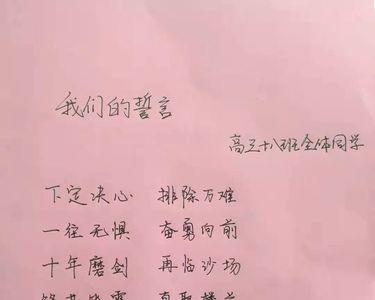 我们的誓言
高三十八班全体同学
下定决心 排除万难
一往无惧 奋勇向前
十年磨剑 再临沙场